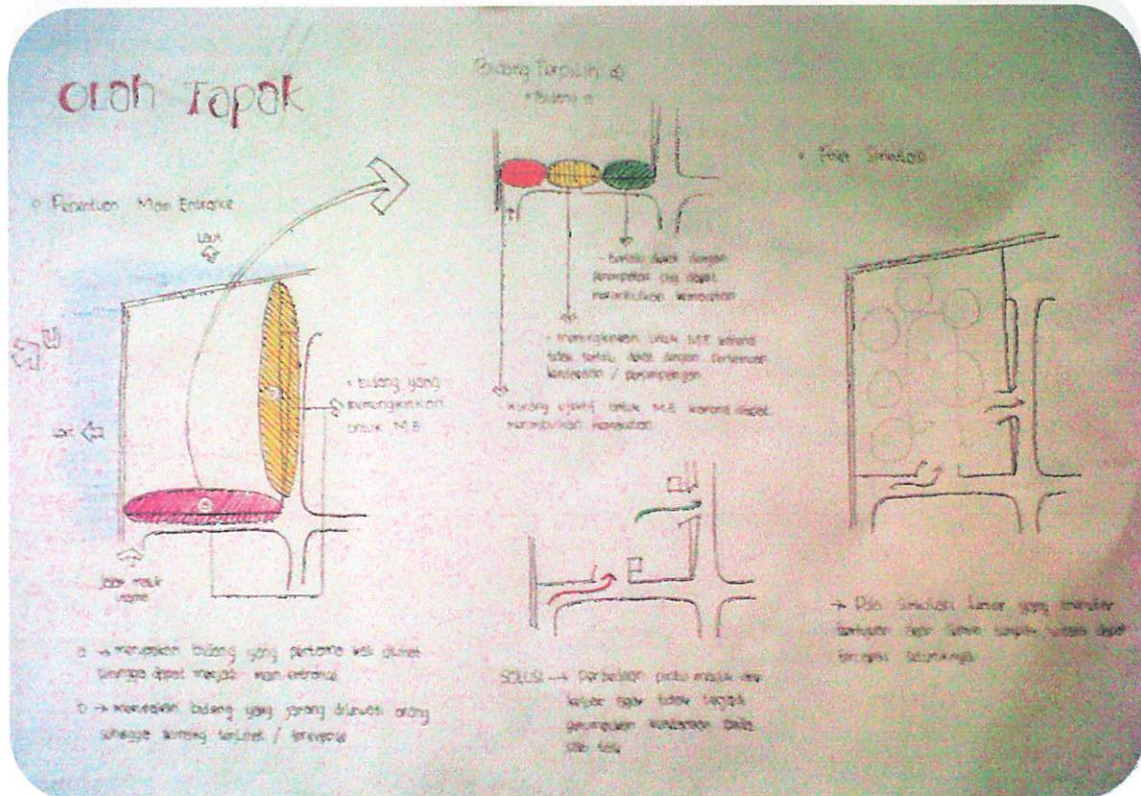 OLah Tapak
Penentuan Main Entrance
Laut
Laut
• Bidang yang
memungkinkan
untuk M.E
Jalan masuk
a → merupakan bidang yang pertama kali dilihat
sehingga dapat menjadi main entrance
b → merupakan bidang yang jarang dilewati orang
sehingga kurang terlihat /
Bidang Terpilih a
• Bidang a
- terlalu dekat dengan
dapat
menimbulkan kemacetan
- memungkinkan untuk M.E karena
tidak terlalu dekat dengan pertemuan
kendaraan / persimpangan
- kurang efektif untuk M.E karena dapat
menimbulkan kemacetan
SOLUSI → Perbedaan pintu masuk dan
keluar agar tidak terjadi
penumpukan kendaraan pada
satu sisi
• Sirkulasi
→ Pola sirkulasi linier yang
agar dapat